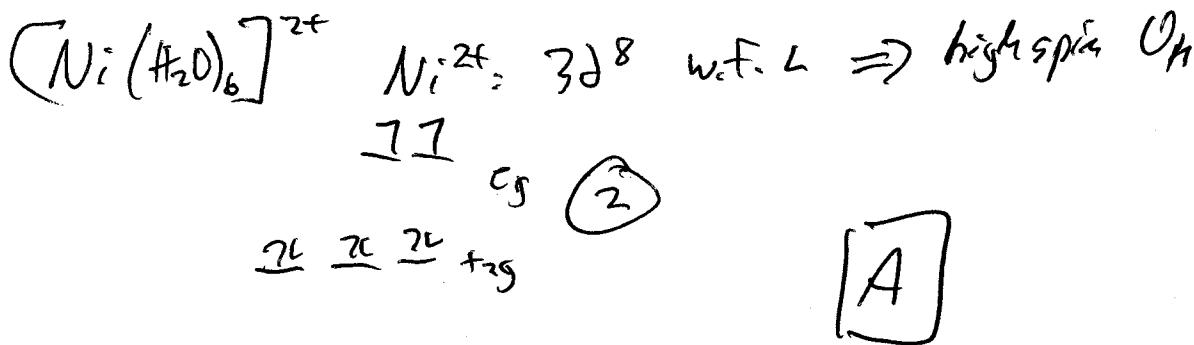 [Ni(H₂O)₆]²⁺ Ni²⁺: 3d⁸ w.f. L ⇒ high spin Oh
↿ ↿ eg ②
⥮ ⥮ ⥮ t₂g
A